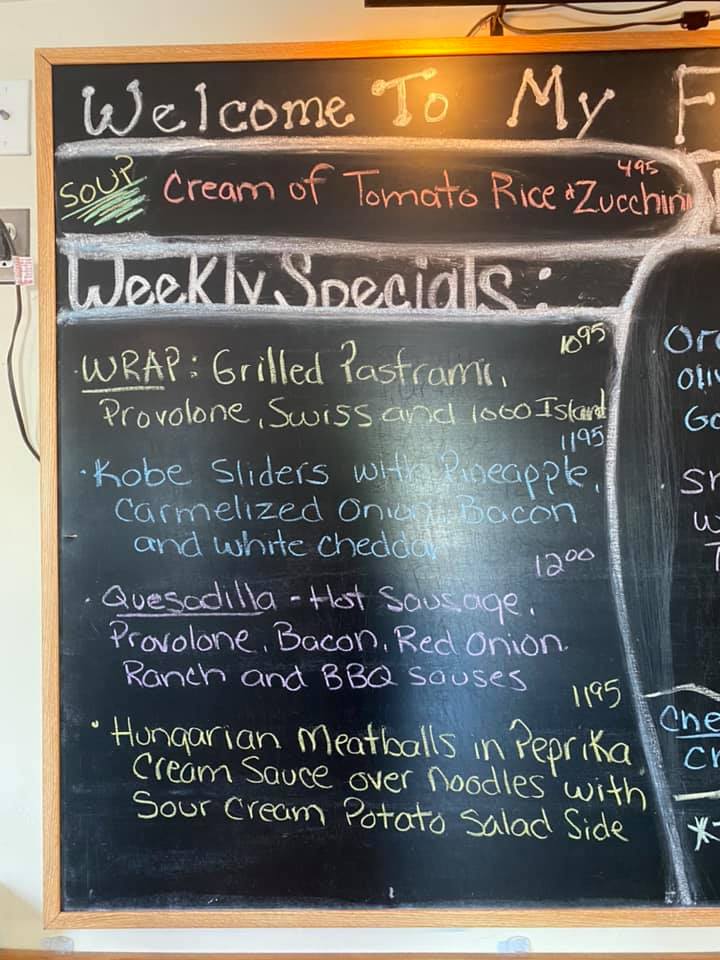 Welcome To My F
SOUP Cream of Tomato Rice & Zucchin 495
Weekly Specials:
1095
· WRAP: Grilled Pastrami,
Provolone, Swiss and 1000 Island
1195
· Kobe Sliders with Pineapple,
Carmelized Onion, Bacon
and white cheddar
1200
· Quesadilla - Hot Sausage,
Provolone, Bacon, Red Onion
Ranch and BBQ Sauses
1195
· Hungarian Meatballs in Peprika
Cream Sauce over Noodles with
Sour Cream Potato Salad Side
Oliv
Go
Che